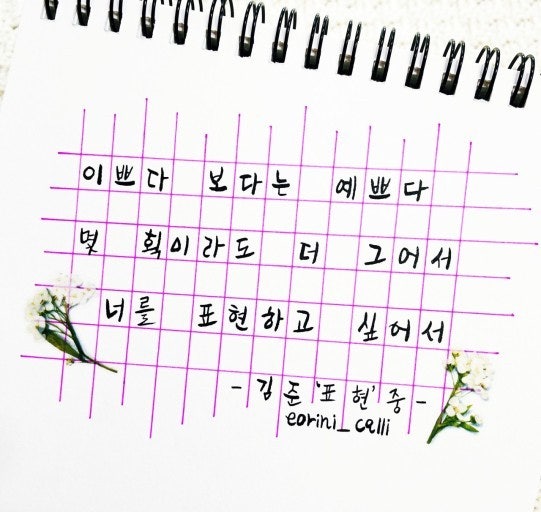 이쁘다 보다는 예쁘다
몇 획이라도 더 그어서
너를 표현하고 싶어서
- 김준 '표현' 중 -
eorini_calli